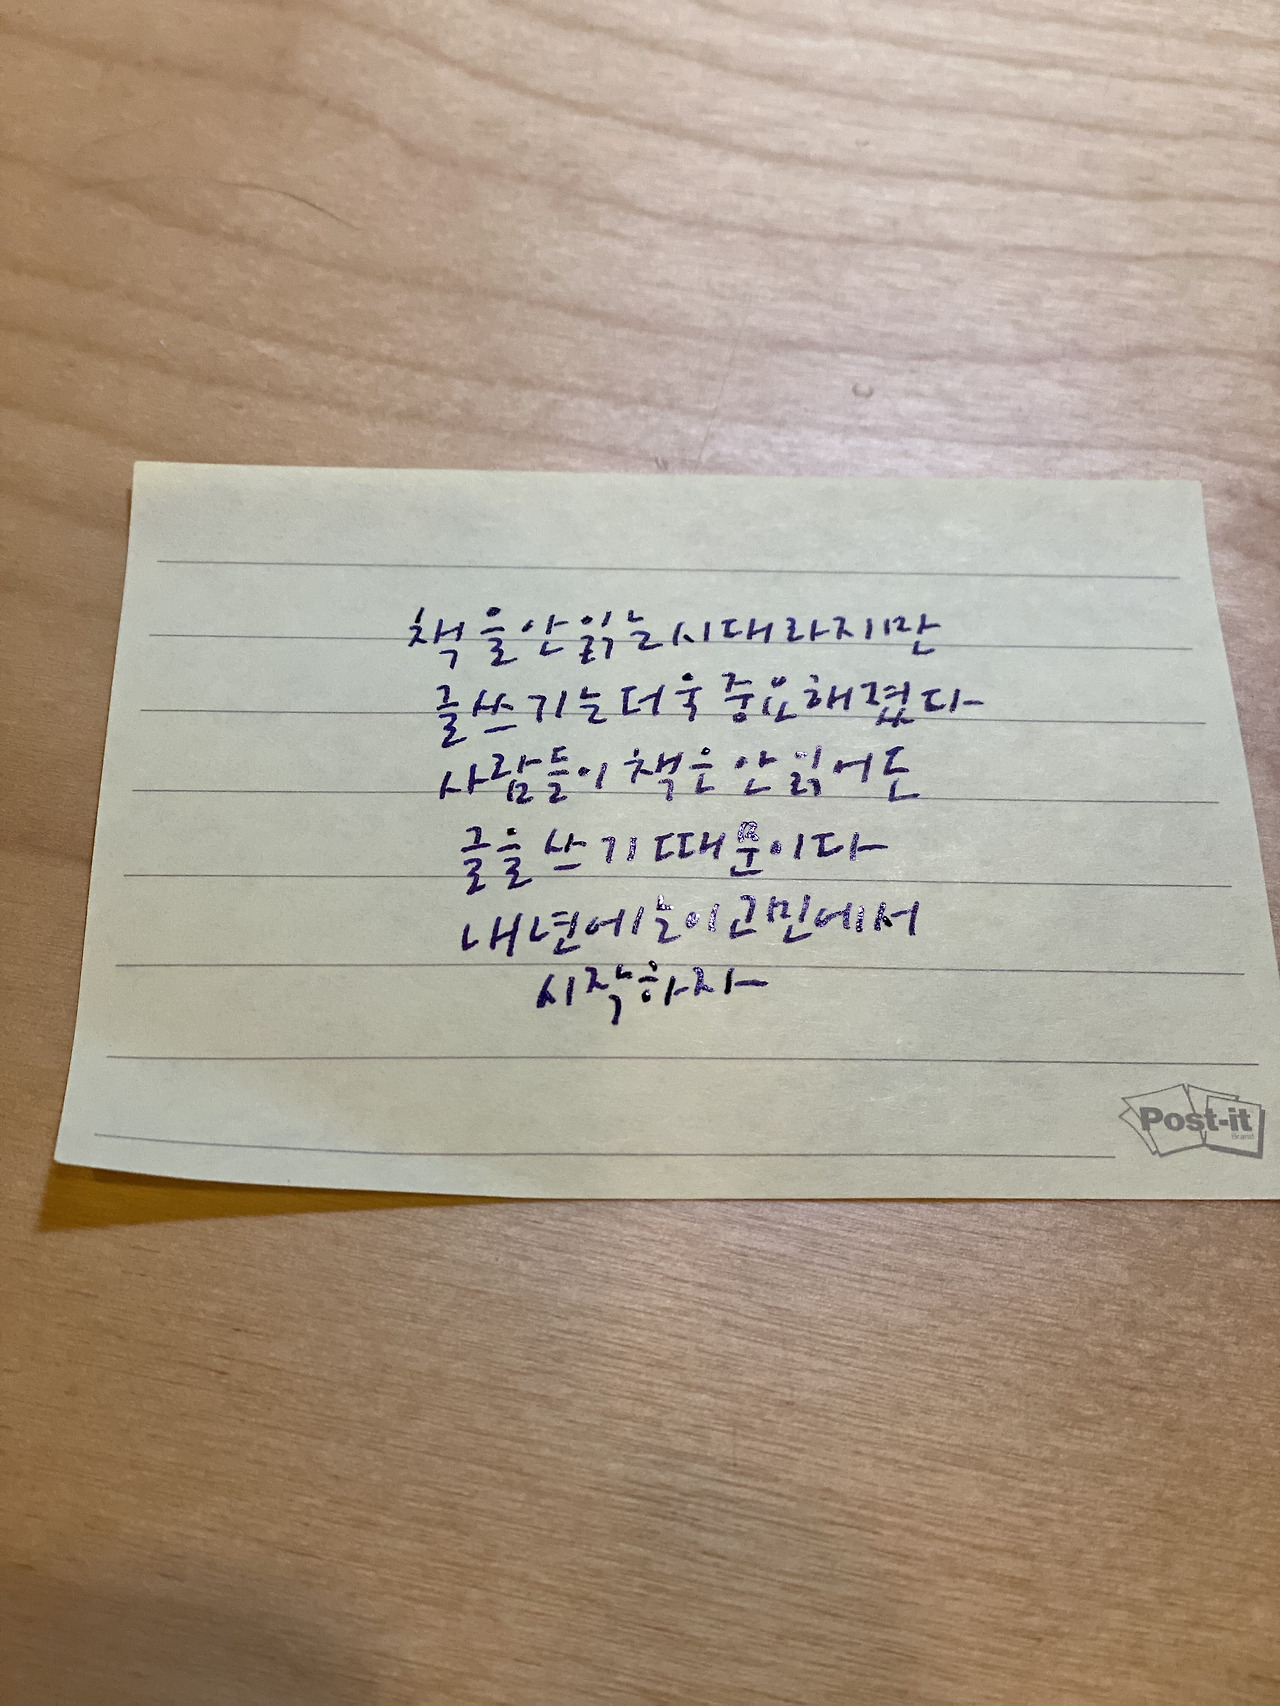 책을 안 읽는 시대라지만
글쓰기는 더욱 중요해졌다
사람들이 책은 안 읽어도
글을 쓰기 때문이다
내년에는 이 고민에서
시작하자
Post-it
Brand